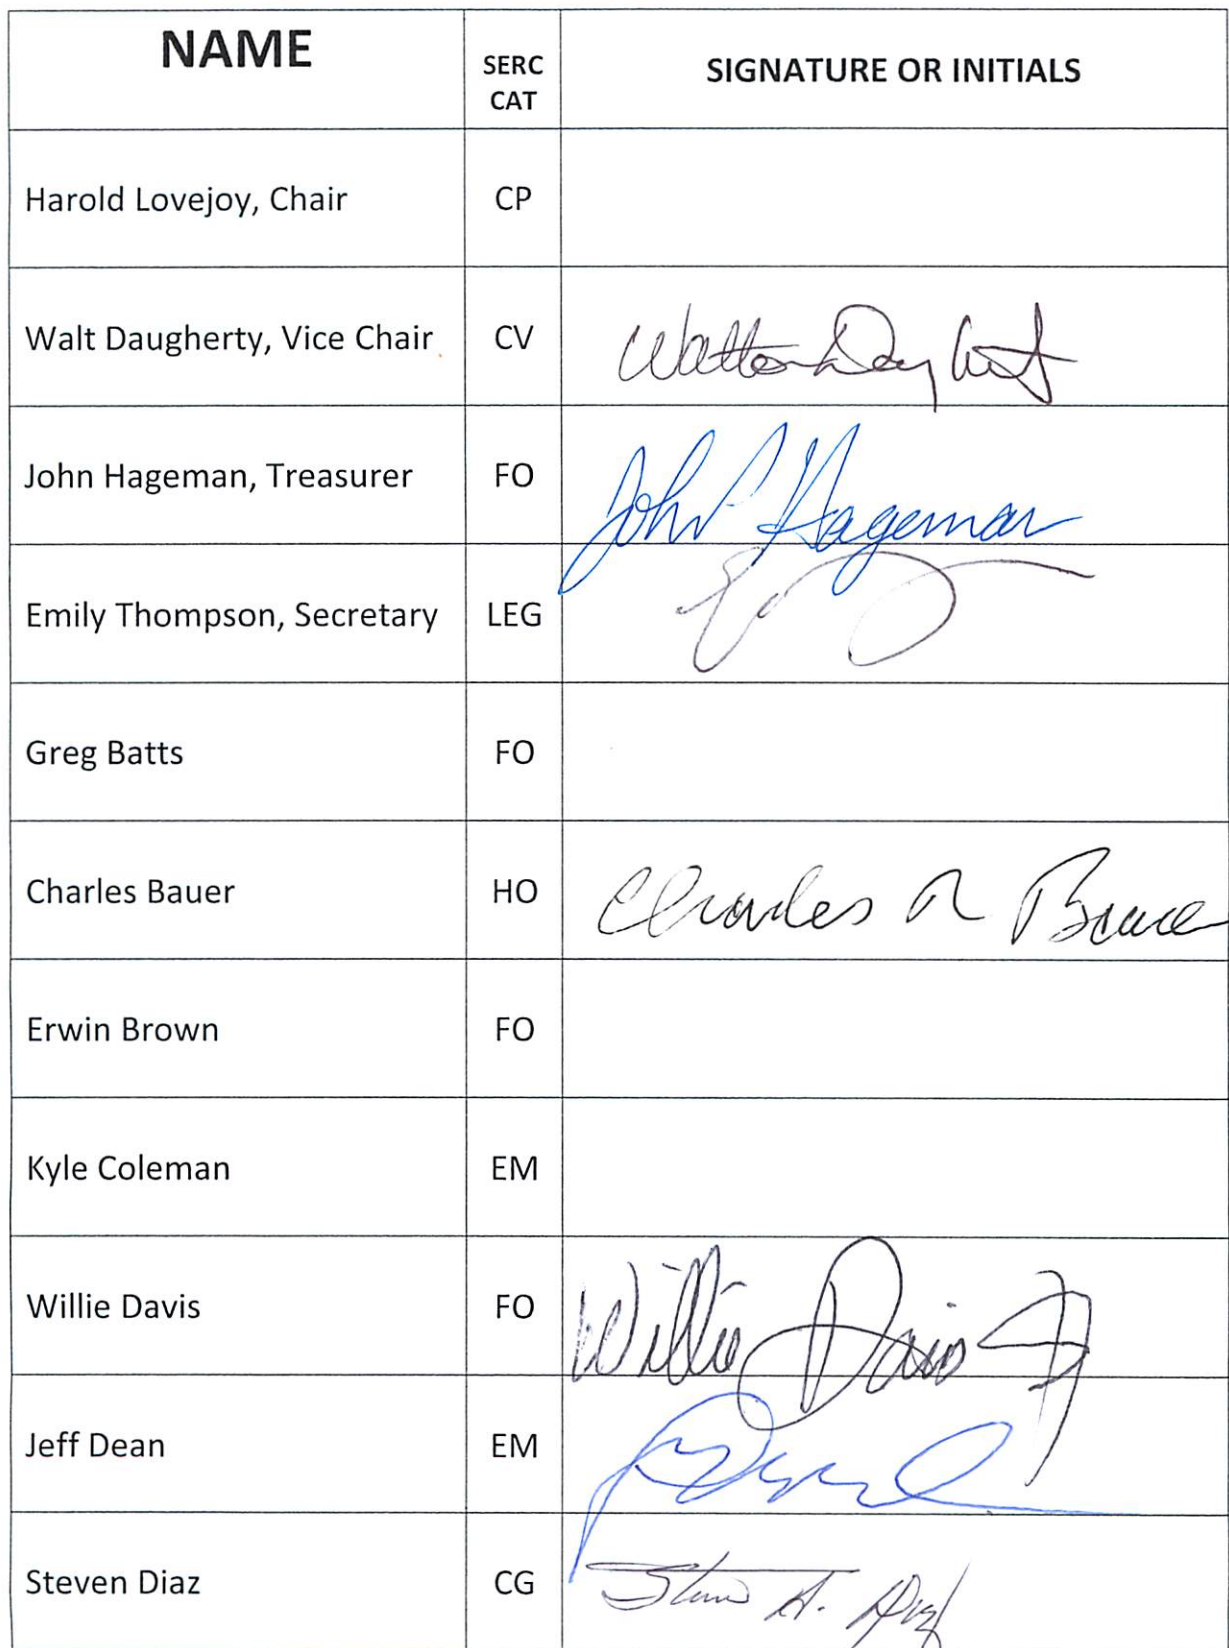 NAME SERC CAT SIGNATURE OR INITIALS
Harold Lovejoy, Chair CP
Walt Daugherty, Vice Chair CV
John Hageman, Treasurer FO John Hageman
Emily Thompson, Secretary LEG
Greg Batts FO
Charles Bauer HO Charles R
Erwin Brown FO
Kyle Coleman EM
Willie Davis FO Willie Davis
Jeff Dean EM
Steven Diaz CG